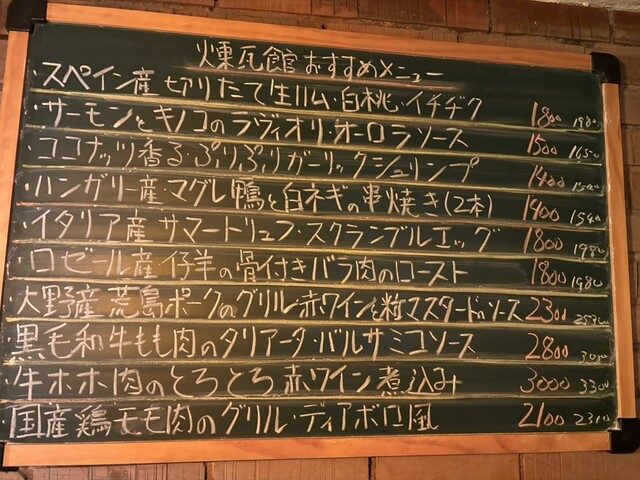 煉瓦館おすすめメニュー
・スペイン産 切りたて生ハム・白桃・イチヂク 1800 1980
・サーモンとキノコのラヴィオリ・オーロラソース 1500 1650
・ココナッツ香る・ぷりぷりガーリックシュリンプ 1400 1540
・ハンガリー産・マグレ鴨と白ネギの串焼き(2本) 1400 1540
・イタリア産 サマートリュフ・スクランブルエッグ 1800 1980
・ロゼール産 仔羊の骨付きバラ肉のロースト 1800 1980
・大野産 荒島ポークのグリル・赤ワインと粒マスタードのソース 2300 2530
・黒毛和牛もも肉のタリアータ・バルサミコソース 2800
・牛ホホ肉のとろとろ赤ワイン煮込み 3000 3300
・国産鶏モモ肉のグリル・ディアボロ風 2100 2310